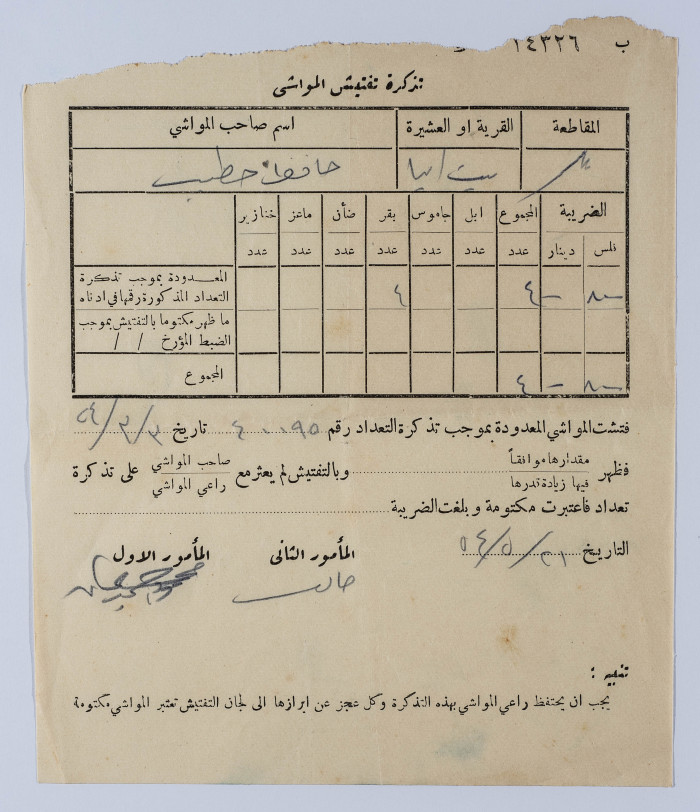 ب ١٤٣٢٦
تذكرة تفتيش المواشي
المقاطعة القرية او العشيرة اسم صاحب المواشي
بيت ايبا حافظ خطيب
الضريبة المجموع ابل جاموس بقر ضأن ماعز خنازير
فلس دينار عدد عدد عدد عدد عدد عدد عدد
٨٠٠ — ٤ ٤ المعدودة بموجب تذكرة
التعداد المذكورة رقمها في ادناه
ما ظهر مكتوما بالتفتيش بموجب
الضبط المؤرخ / /
٨٠٠ — ٤ المجموع
فتشت المواشي المعدودة بموجب تذكرة التعداد رقم ٤٠٠٩٥ تاريخ ٥٤/٣/٣
فظهر مقدارها موافقاً وبالتفتيش لم يعثر مع صاحب المواشي على تذكرة
فيها زيادة قدرها راعي المواشي
تعداد فاعتبرت مكتومة وبلغت الضريبة
التاريخ ٥٤/٥/٣١
المأمور الثاني المأمور الاول
تنبيه :
يجب ان يحتفظ راعي المواشي بهذه التذكرة وكل عجز عن ابرازها الى لجان التفتيش تعتبر المواشي مكتومة